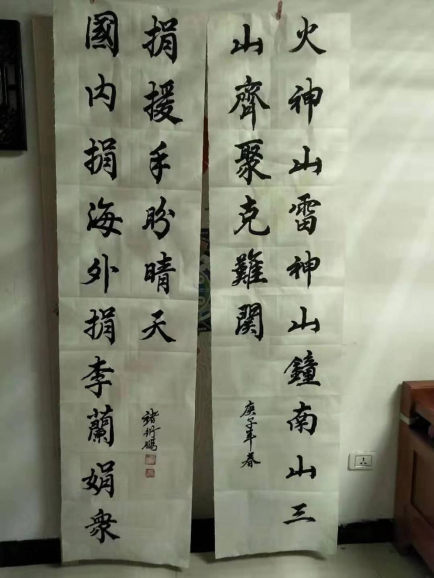 火神山雷神山鐘南山三
山齊聚克難関
庚子年春
國内捐海外捐李蘭娟衆
捐援手盼晴天